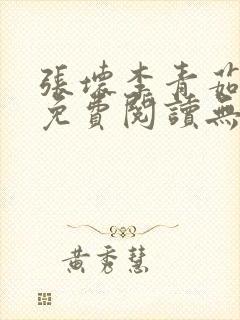 張壞李青茹
免費閱讀無
黃秀慧